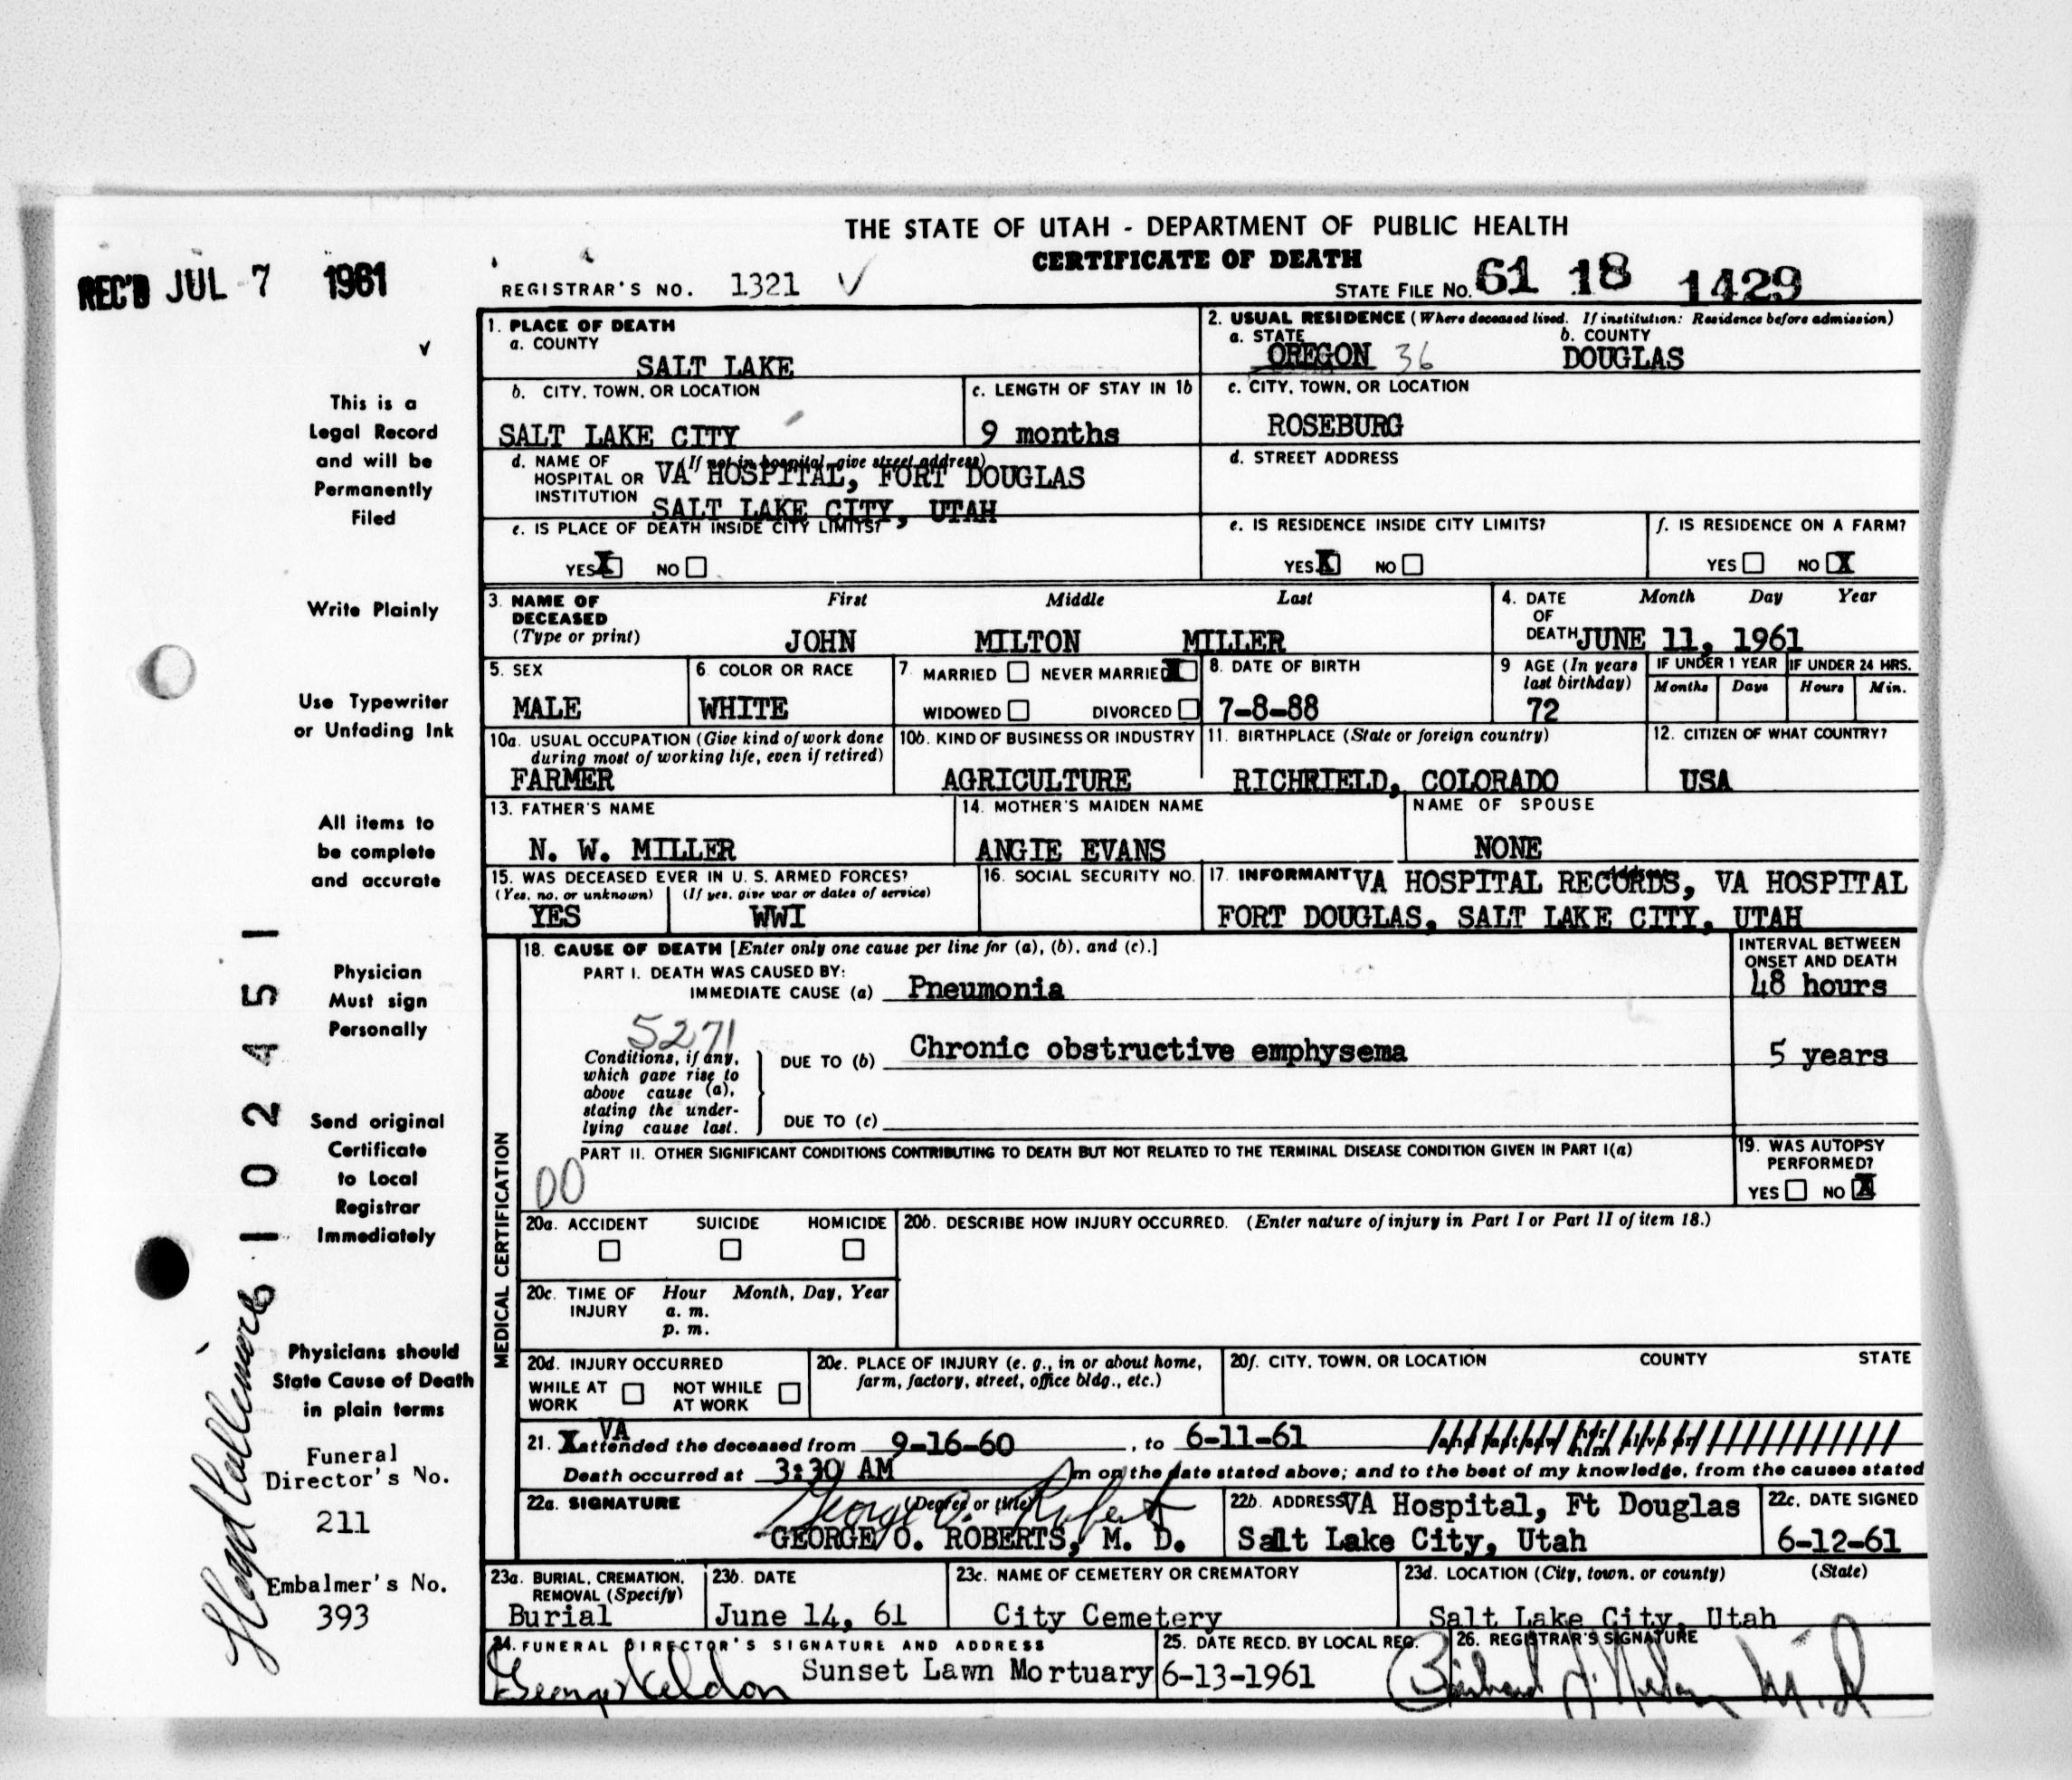 THE STATE OF UTAH - DEPARTMENT OF PUBLIC HEALTH
CERTIFICATE OF DEATH
REC'D JUL 7 1961
REGISTRAR'S NO. 1321 V
STATE FILE NO. 61 18 1429
1. PLACE OF DEATH
a. COUNTY
SALT LAKE
2. USUAL RESIDENCE (Where deceased lived. If institution: Residence before admission)
a. STATE b. COUNTY
OREGON 36 DOUGLAS
b. CITY, TOWN, OR LOCATION
SALT LAKE CITY
c. LENGTH OF STAY IN 1b
9 months
c. CITY, TOWN, OR LOCATION
ROSEBURG
d. NAME OF HOSPITAL OR INSTITUTION (If not in hospital, give street address)
VA HOSPITAL, FORT DOUGLAS
SALT LAKE CITY, UTAH
d. STREET ADDRESS
e. IS PLACE OF DEATH INSIDE CITY LIMITS?
YES X NO
e. IS RESIDENCE INSIDE CITY LIMITS?
YES X NO
f. IS RESIDENCE ON A FARM?
YES NO X
3. NAME OF DECEASED (Type or print)
First Middle Last
JOHN MILTON MILLER
4. DATE OF DEATH
Month Day Year
JUNE 11, 1961
5. SEX
MALE
6. COLOR OR RACE
WHITE
7. MARRIED NEVER MARRIED X
WIDOWED DIVORCED
8. DATE OF BIRTH
7-8-88
9 AGE (In years last birthday)
72
IF UNDER 1 YEAR
Months Days
IF UNDER 24 HRS.
Hours Min.
10a. USUAL OCCUPATION (Give kind of work done
during most of working life, even if retired)
FARMER
10b. KIND OF BUSINESS OR INDUSTRY
AGRICULTURE
11. BIRTHPLACE (State or foreign country)
RICHFIELD, COLORADO
12. CITIZEN OF WHAT COUNTRY?
USA
13. FATHER'S NAME
N. W. MILLER
14. MOTHER'S MAIDEN NAME
ANGIE EVANS
NAME OF SPOUSE
NONE
15. WAS DECEASED EVER IN U. S. ARMED FORCES?
(Yes, no, or unknown) (If yes, give war or dates of service)
YES WWI
16. SOCIAL SECURITY NO.
17. INFORMANT Address
VA HOSPITAL RECORDS, VA HOSPITAL
FORT DOUGLAS, SALT LAKE CITY, UTAH
MEDICAL CERTIFICATION
18. CAUSE OF DEATH [Enter only one cause per line for (a), (b), and (c).]
INTERVAL BETWEEN
ONSET AND DEATH
PART I. DEATH WAS CAUSED BY:
IMMEDIATE CAUSE (a) Pneumonia 48 hours
5271
Conditions, if any,
which gave rise to
above cause (a),
stating the under-
lying cause last.
DUE TO (b) Chronic obstructive emphysema 5 years
DUE TO (c)
PART II. OTHER SIGNIFICANT CONDITIONS CONTRIBUTING TO DEATH BUT NOT RELATED TO THE TERMINAL DISEASE CONDITION GIVEN IN PART I(a)
00
19. WAS AUTOPSY
PERFORMED?
YES NO X
20a. ACCIDENT SUICIDE HOMICIDE
20b. DESCRIBE HOW INJURY OCCURRED. (Enter nature of injury in Part I or Part II of item 18.)
20c. TIME OF INJURY
Hour Month, Day, Year
a. m.
p. m.
20d. INJURY OCCURRED
WHILE AT WORK NOT WHILE AT WORK
20e. PLACE OF INJURY (e. g., in or about home,
farm, factory, street, office bldg., etc.)
20f. CITY, TOWN, OR LOCATION COUNTY STATE
VA
21. X attended the deceased from 9-16-60, to 6-11-61
Death occurred at 3:30 AM m on the date stated above; and to the best of my knowledge, from the causes stated
22a. SIGNATURE (Degree or title)
George O. Roberts
GEORGE O. ROBERTS, M. D.
22b. ADDRESS VA Hospital, Ft Douglas
Salt Lake City, Utah
22c. DATE SIGNED
6-12-61
23a. BURIAL, CREMATION,
REMOVAL (Specify)
Burial
23b. DATE
June 14, 61
23c. NAME OF CEMETERY OR CREMATORY
City Cemetery
23d. LOCATION (City, town, or county) (State)
Salt Lake City, Utah
24. FUNERAL DIRECTOR'S SIGNATURE AND ADDRESS
Sunset Lawn Mortuary
25. DATE RECD. BY LOCAL REG.
6-13-1961
26. REGISTRAR'S SIGNATURE
This is a
Legal Record
and will be
Permanently
Filed
Write Plainly
Use Typewriter
or Unfading Ink
All items to
be complete
and accurate
Physician
Must sign
Personally
Send original
Certificate
to Local
Registrar
Immediately
Physicians should
State Cause of Death
in plain terms
Funeral
Director's No.
211
Embalmer's No.
393
1 0 2 4 5 1